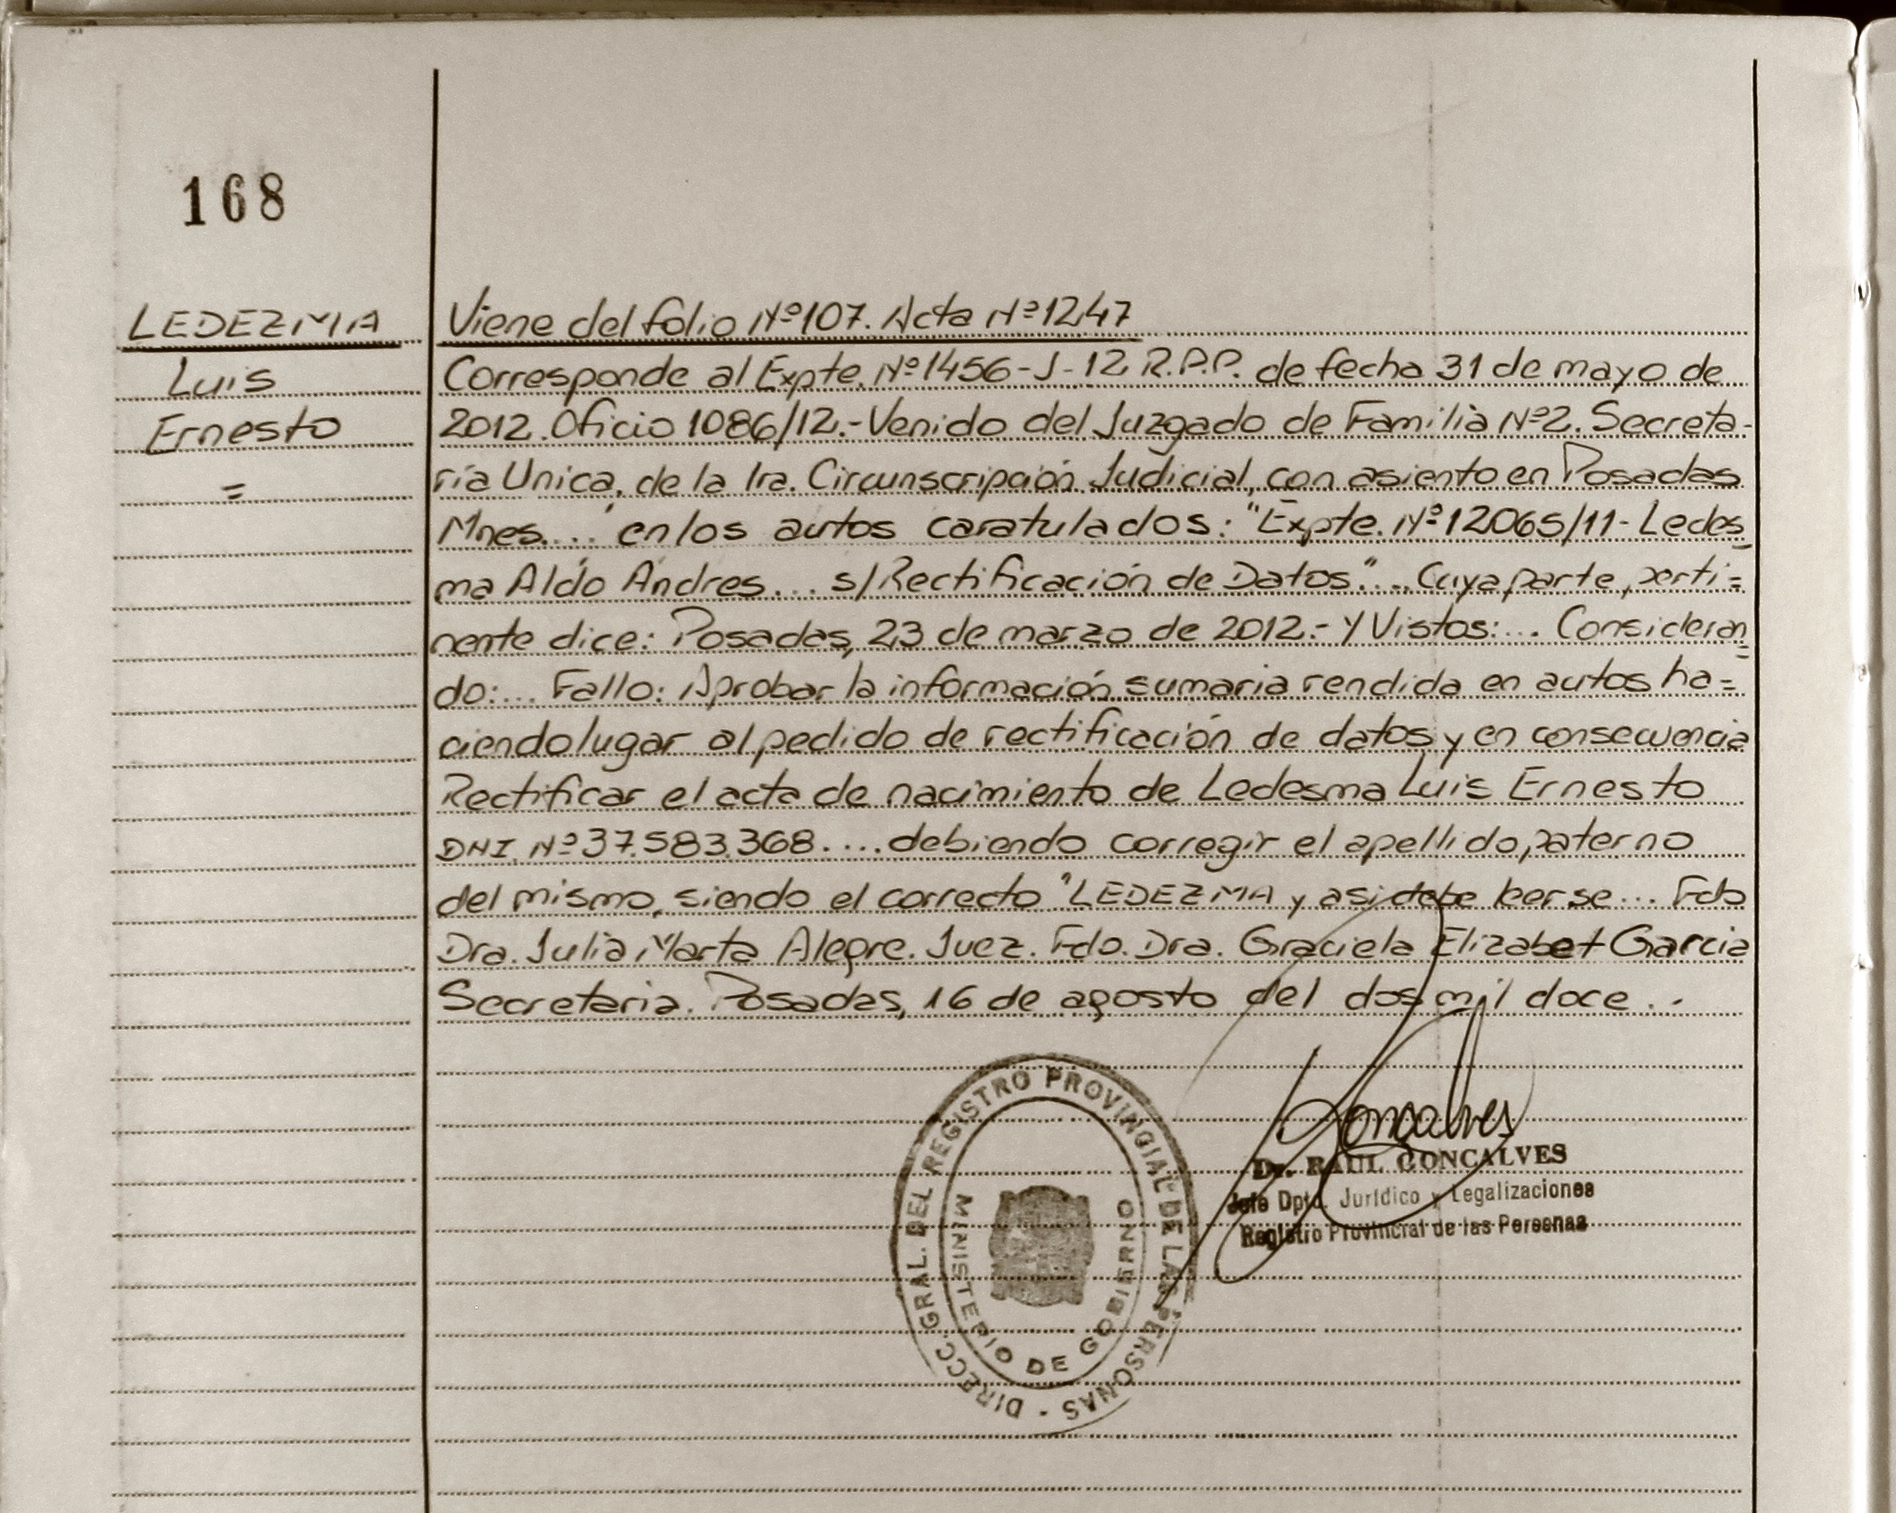 168
LEDEZMA
Luis
Ernesto
=
Viene del folio Nº 107. Acta Nº 1247
Corresponde al Expte. Nº 1456-J-12 R.P.P. de fecha 31 de mayo de
2012. Oficio 1086/12.- Venido del Juzgado de Familia Nº2. Secreta-
ría Unica, de la 1ra. Circunscripción Judicial, con asiento en Posadas
Mnes...." en los autos caratulados: "Expte. Nº 12065/11- Ledes
ma Aldo Andres... s/Rectificación de Datos."... Cuya parte perti=
nente dice: Posadas, 23 de marzo de 2012.- Y Vistos:... Consideran
=
do:... Fallo: Aprobar la información sumaria rendida en autos ha=
ciendo lugar al pedido de rectificación de datos y en consecuencia
Rectificar el acta de nacimiento de Ledesma Luis Ernesto
DNI. Nº 37.583.368.... debiendo corregir el apellido paterno
del mismo, siendo el correcto "LEDEZMA y asi debe leerse... Fdo
Dra. Julia Marta Alegre. Juez. Fdo. Dra. Graciela Elizabet Garcia
Secretaria. Posadas, 16 de agosto del dos mil doce..
DIRECC. GRAL. DEL REGISTRO PROVINCIAL DE LAS PERSONAS -
MINISTERIO DE GOBIERNO
Goncalves
Dr. RAUL GONCALVES
Jefe Dpto. Jurídico y Legalizaciones
Registro Provincial de las Personas